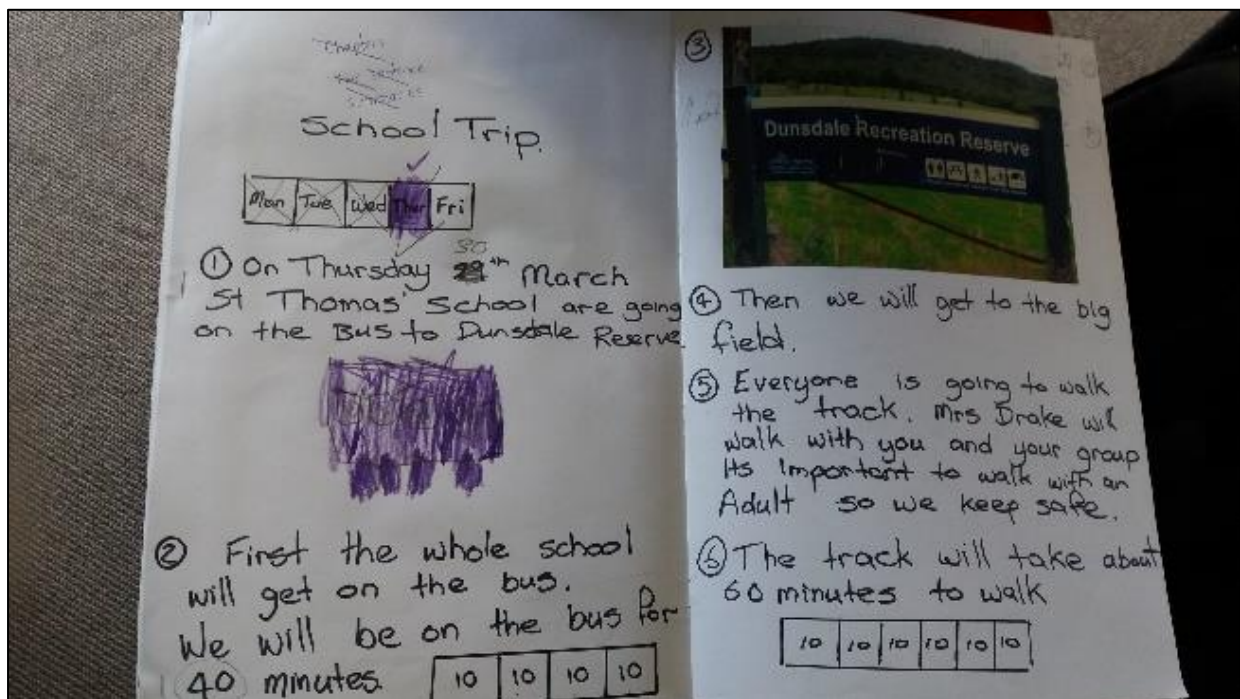 School Trip.
Mon Tue Wed Thur Fri
30
① On Thursday 29th March
St Thomas' School are going
on the Bus to Dunsdale Reserve
② First the whole school
will get on the bus.
We will be on the bus for
40 minutes.
10 10 10 10
③
Dunsdale Recreation Reserve
④ Then we will get to the big
field.
⑤ Everyone is going to walk
the track. Mrs Drake will
walk with you and your group
Its important to walk with an
Adult so we keep safe.
⑥ The track will take about
60 minutes to walk
10 10 10 10 10 10